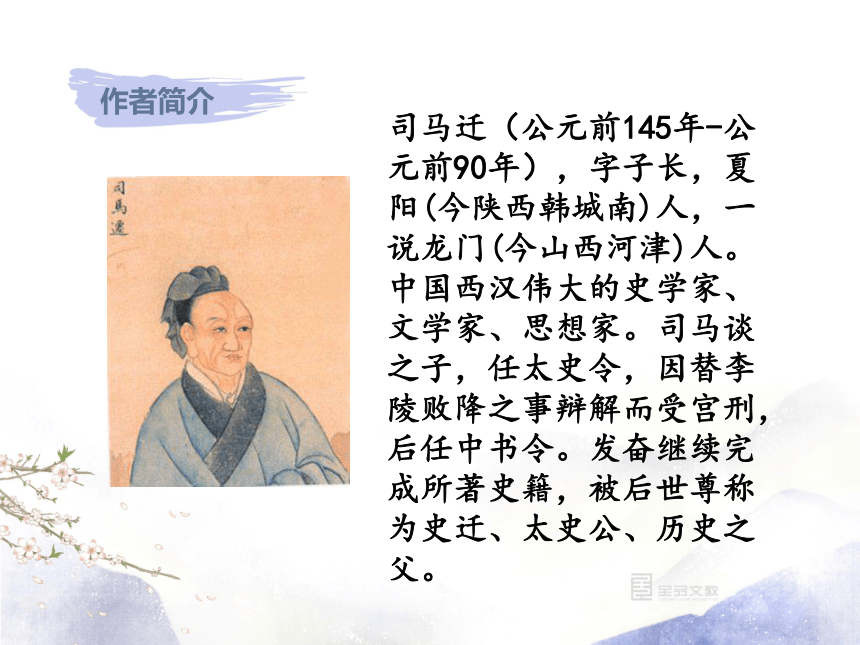 作者简介
司馬遷
司马迁（公元前145年-公
元前90年），字子长，夏
阳(今陕西韩城南)人，一
说龙门(今山西河津)人。
中国西汉伟大的史学家、
文学家、思想家。司马谈
之子，任太史令，因替李
陵败降之事辩解而受宫刑，
后任中书令。发奋继续完
成所著史籍，被后世尊称
为史迁、太史公、历史之
父。